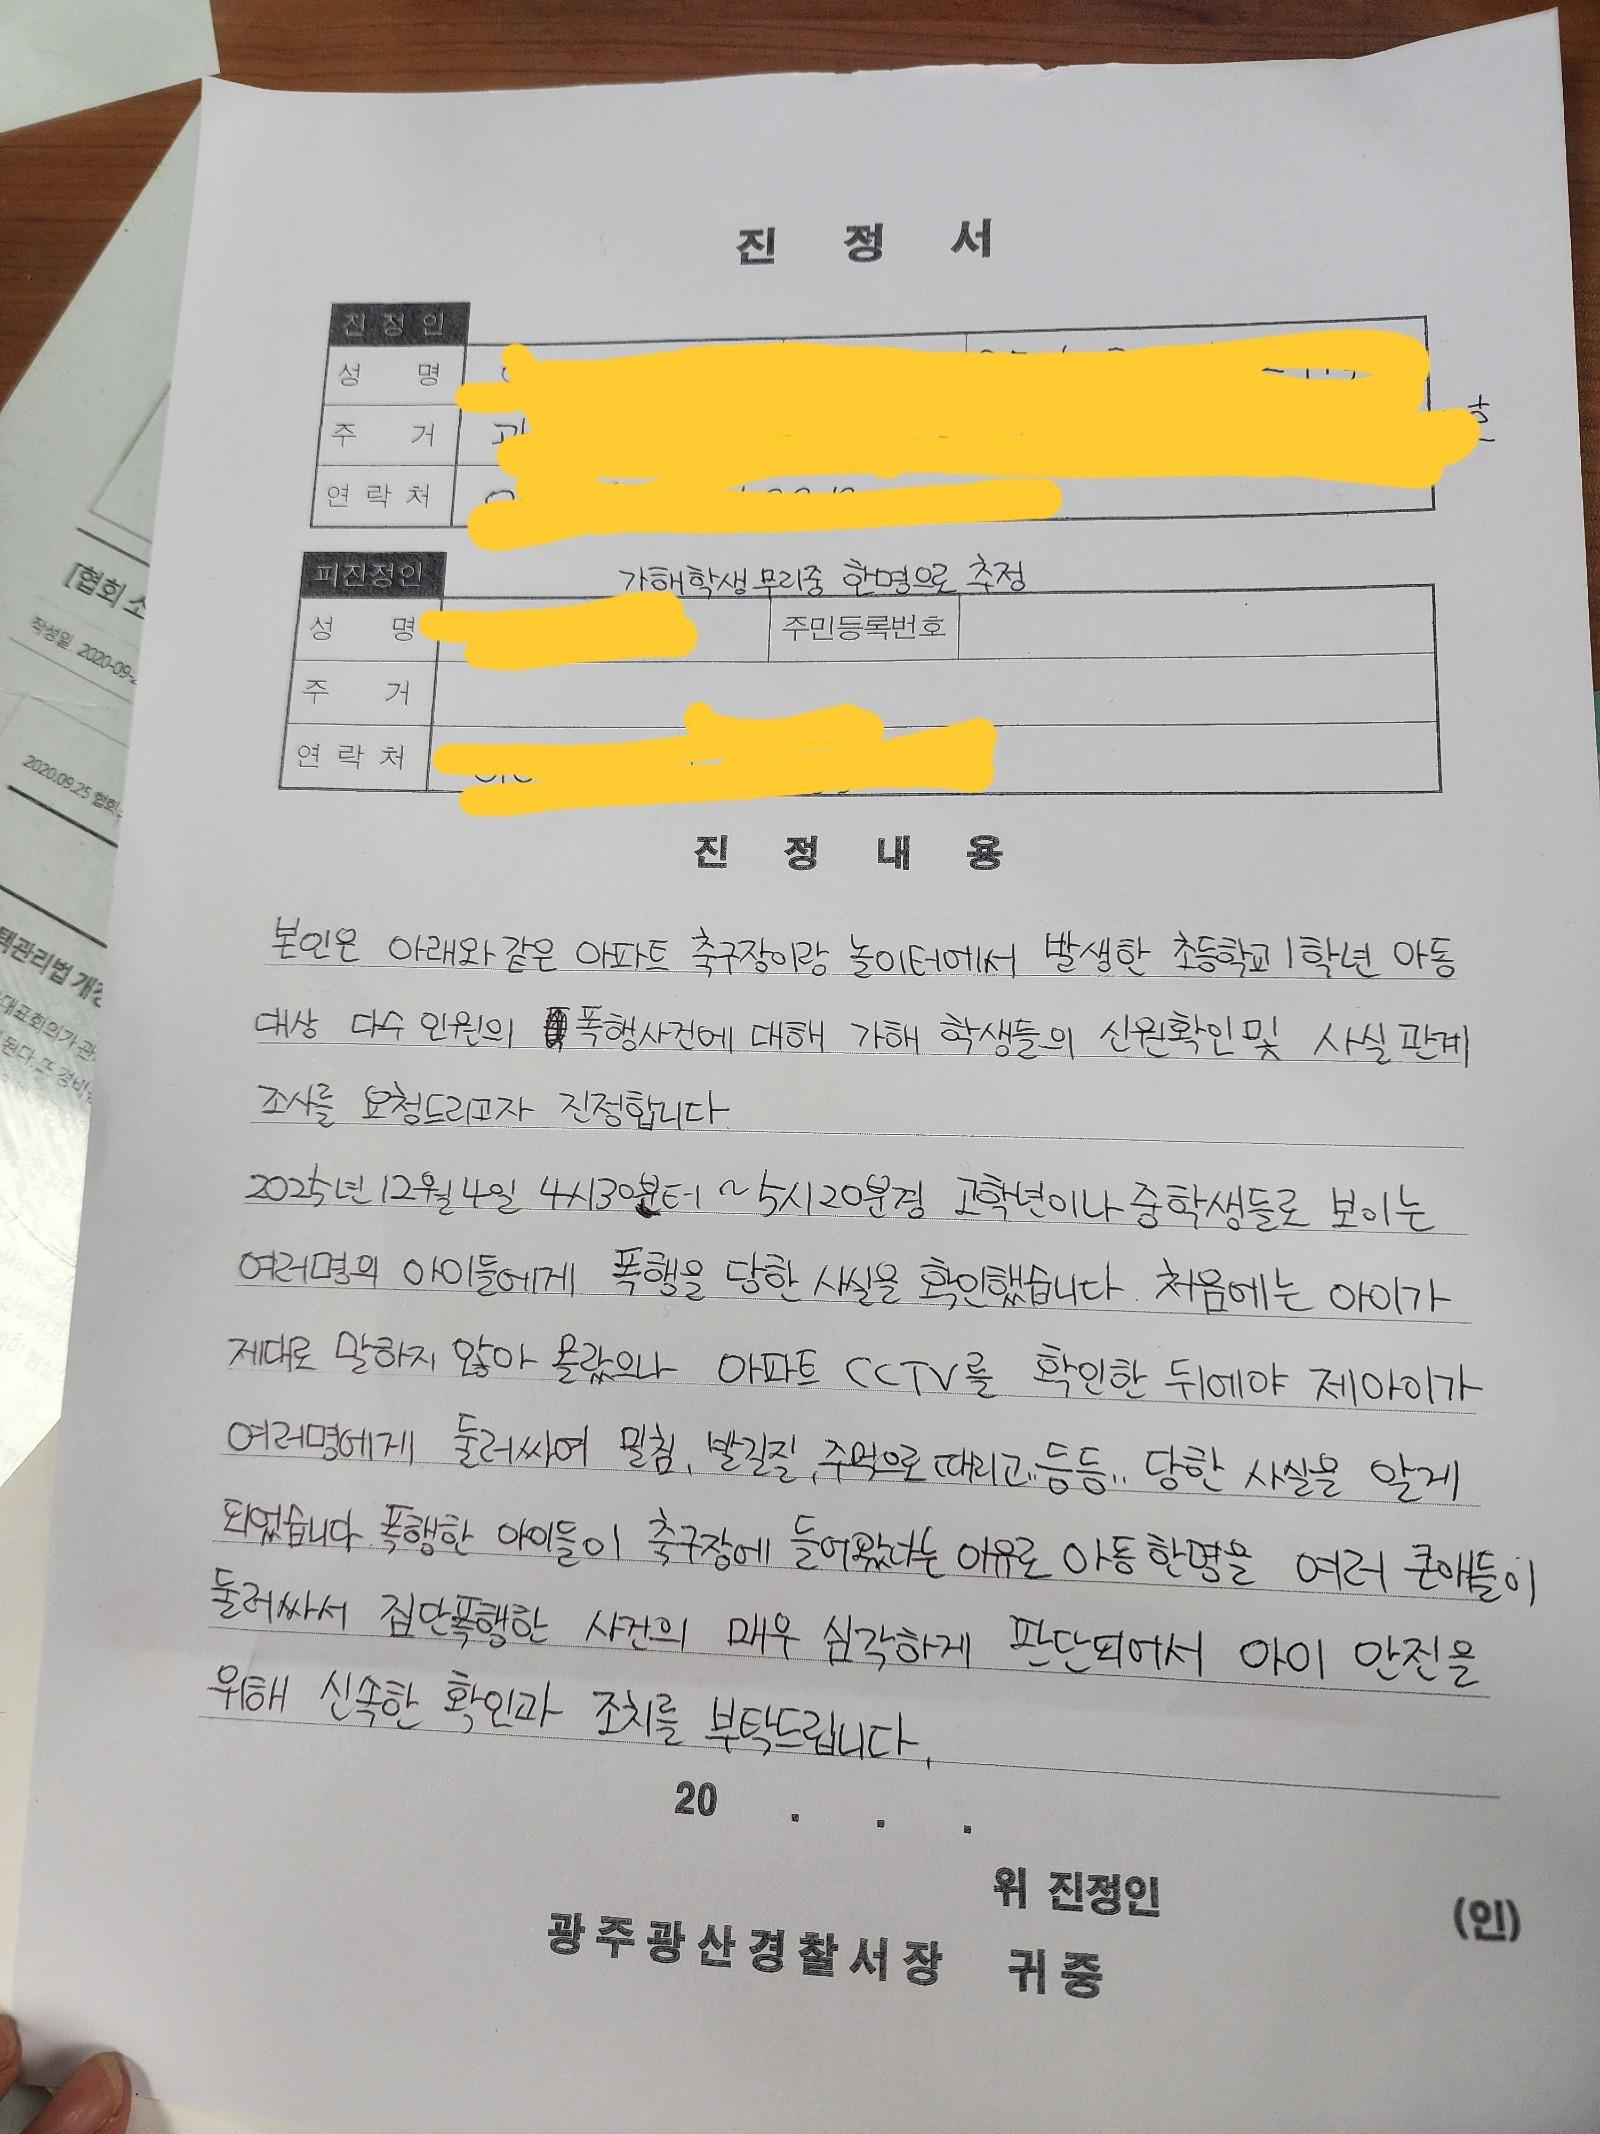 진 정 서
진 정 인
성 명
주 거
연 락 처
피진정인
가해학생무리중 한명으로 추정
성 명
주민등록번호
주 거
연 락 처
진 정 내 용
본인은 아래와 같은 아파트 축구장이랑 놀이터에서 발생한 초등학교 1학년 아동
대상 다수 인원의 폭행사건에 대해 가해 학생들의 신원확인 및 사실 관계
조사를 요청드리고자 진정합니다.
2025년 12월 4일 4시30분터 ~5시20분경 고학년이나 중학생들로 보이는
여러명의 아이들에게 폭행을 당한 사실을 확인했습니다. 처음에는 아이가
제대로 말하지 않아 몰랐으나 아파트 CCTV를 확인한 뒤에야 제아이가
여러명에게 둘러싸여 밀침, 발길질, 주먹으로 때리고.. 등등.. 당한 사실을 알게
되었습니다. 폭행한 아이들이 축구장에 들어왔다는 이유로 아동한명을 여러 큰애들이
둘러싸서 집단폭행한 사건의 매우 심각하게 판단되어서 아이 안전을
위해 신속한 확인과 조치를 부탁드립니다.
20 . . .
위 진정인 (인)
광주광산경찰서장 귀중
[협회 소
작성일 2020-09-2
2020.09.25 협회
택관리법 개정
대표회의가 관
된다. 또 경비